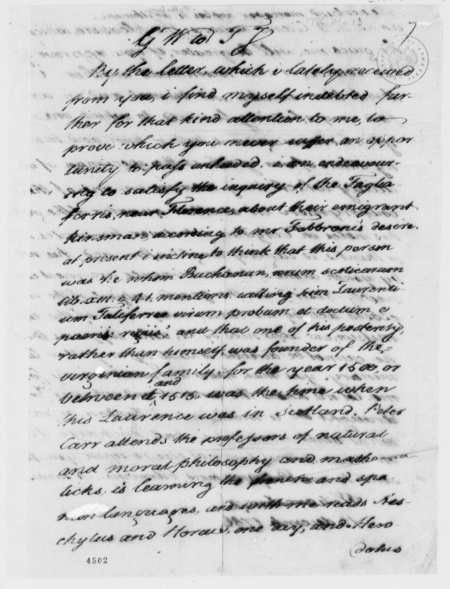 G W to T J
By the letter, which i lately received
from you, i find myself indebted fur
ther for that kind attention to me, to
prove which you never suffer an oppor
tunity to pass unheeded. i am endeavour
ing to satisfy the inquiry of the Taglia
ferris, near Florence, about their emigrant
kinsman, according to mr Fabbroni's desire.
at present i incline to think that this person
was he whom Buchanan, rerum scoticarum
lib. mentions calling him Laurenti
um Taliferrum virum probum et doctum e
pueris regiis and that one of his posterity,
rather than himself, was founder of the
virginian family. for the year 1500, or
between it, and 1513 was the time when
his Laurence was in Scotland. Peter
Carr attends the professors of natural
and moral philosophy and mathema
ticks, is learning the french and spa
nish languages, and with me reads Aes
chylus and Horace, one day, and Hero
dotus
4502